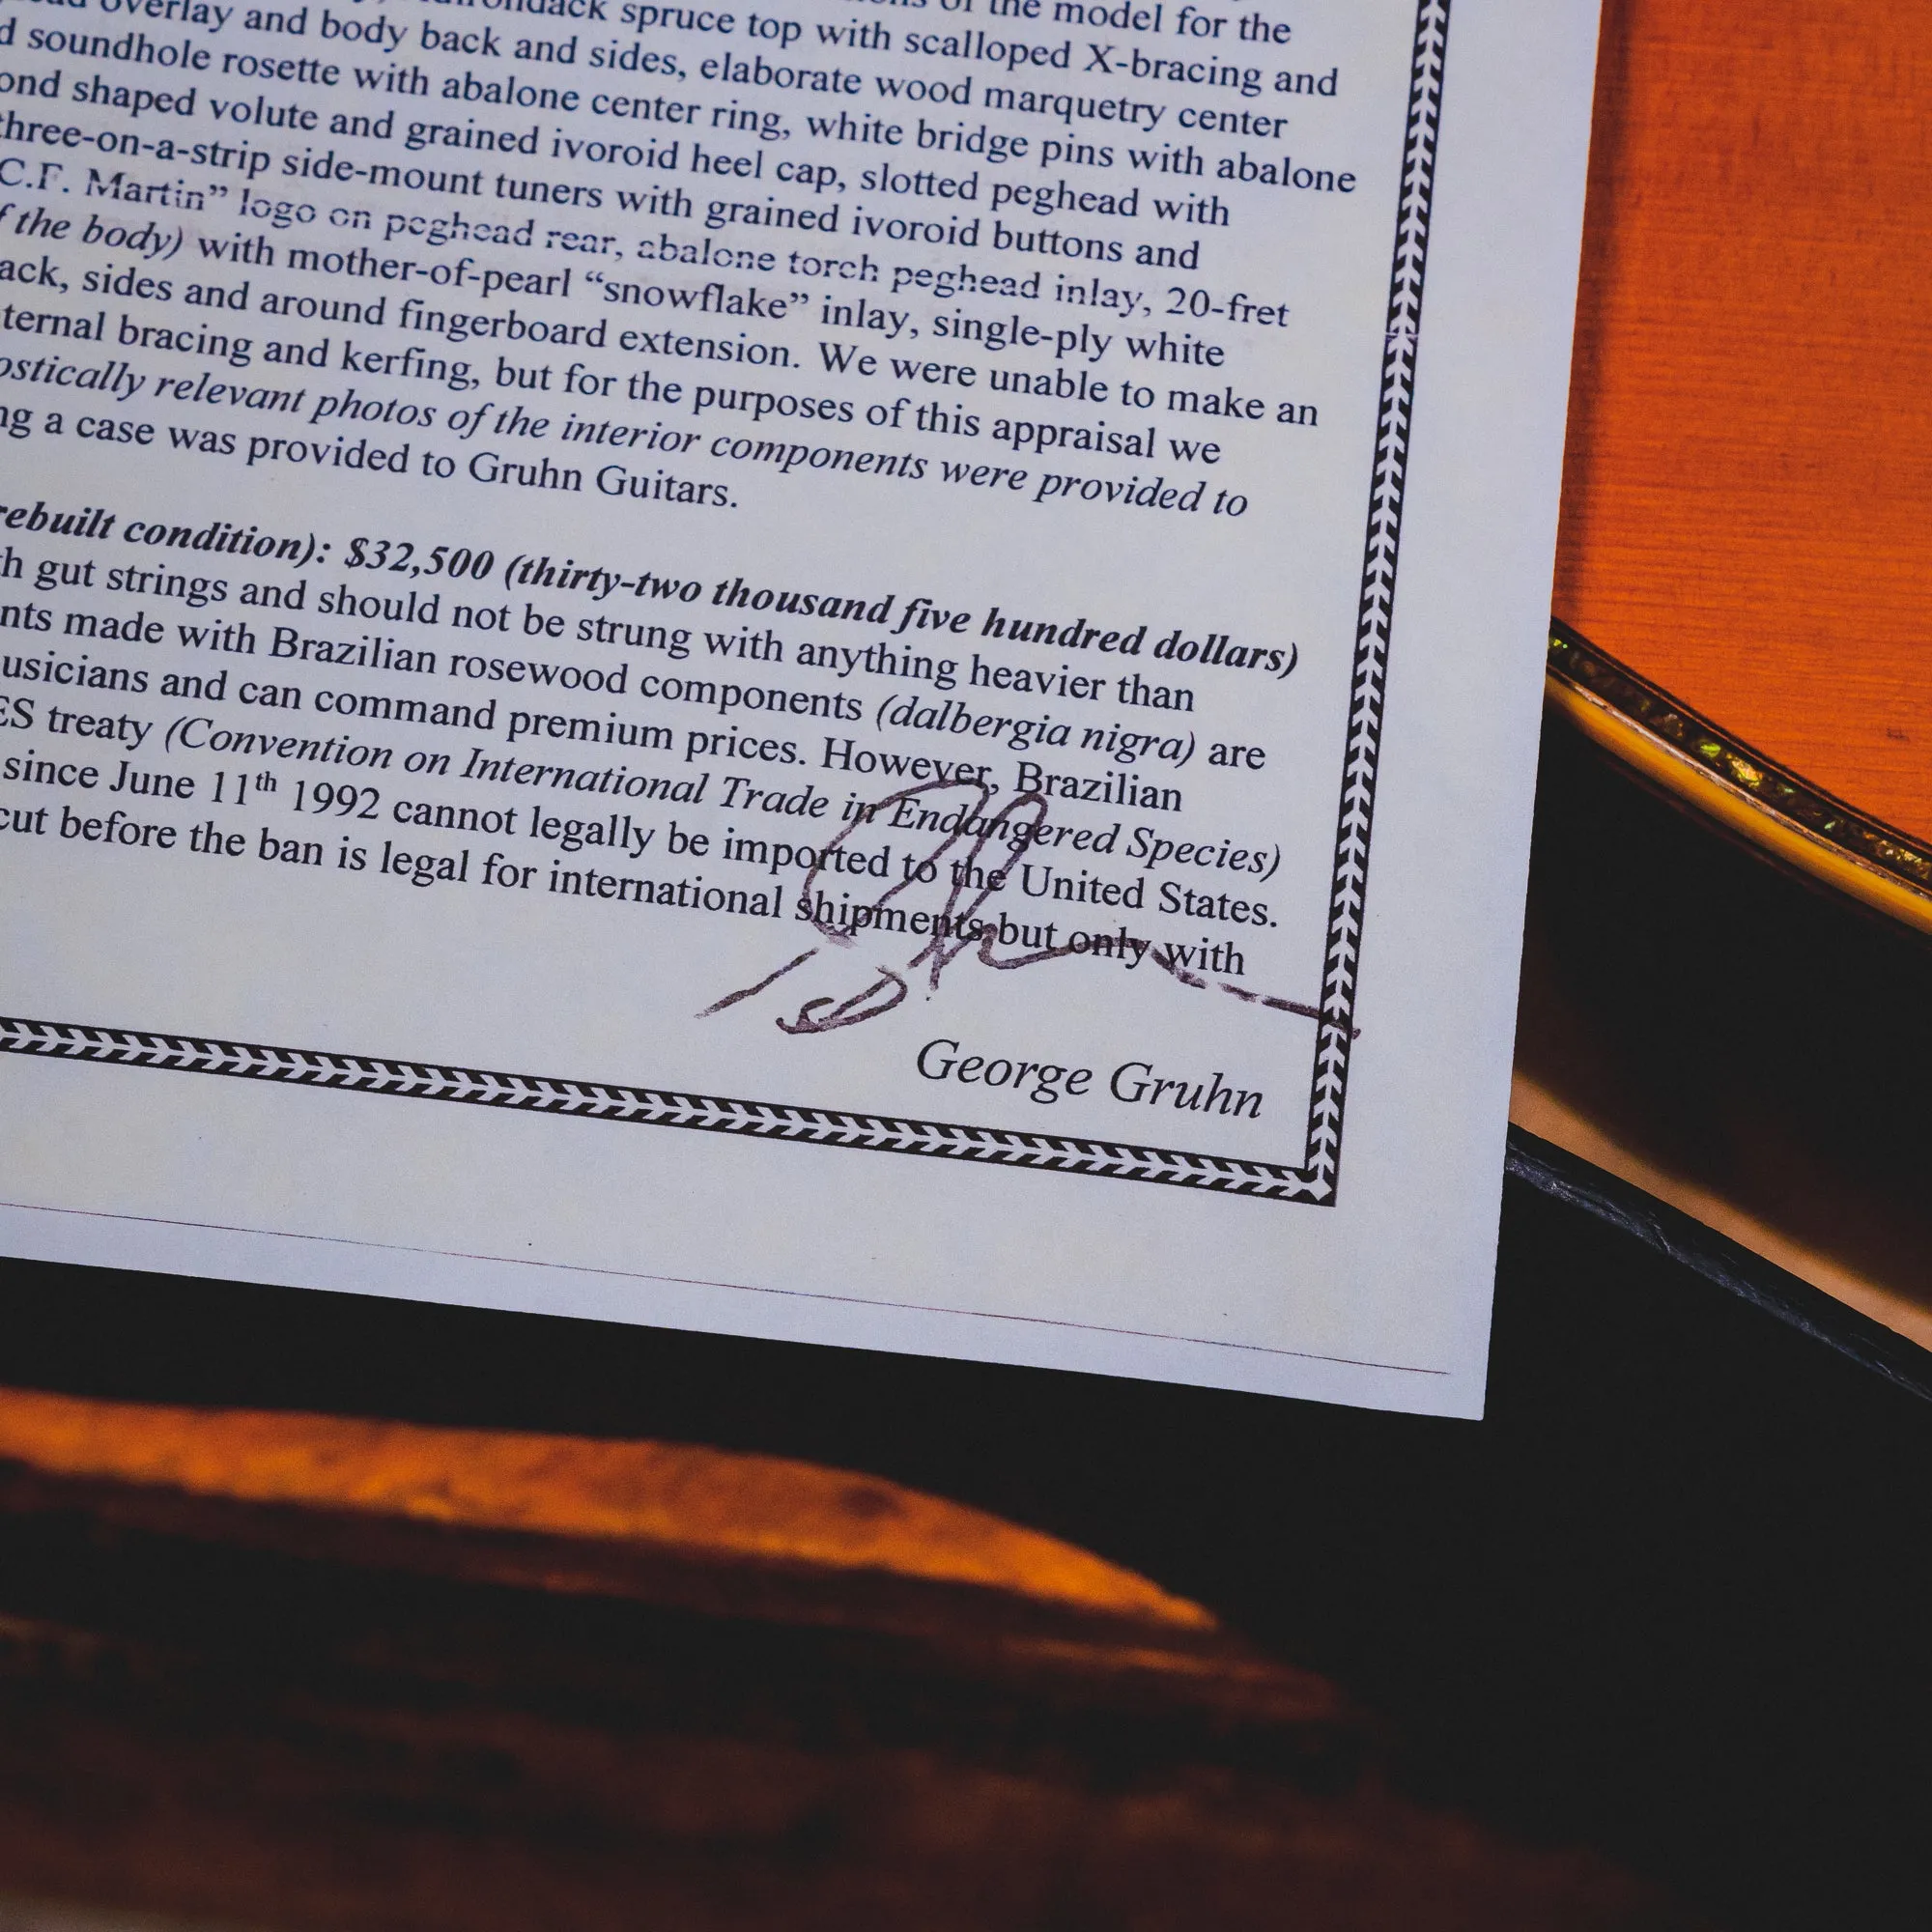 of the model for the
spruce top with scalloped X-bracing and
overlay and body back and sides, elaborate wood marquetry center
d soundhole rosette with abalone center ring, white bridge pins with abalone
ond shaped volute and grained ivoroid heel cap, slotted peghead with
three-on-a-strip side-mount tuners with grained ivoroid buttons and
C.F. Martin” logo on peghead rear, abalone torch peghead inlay, 20-fret
f the body) with mother-of-pearl “snowflake” inlay, single-ply white
ack, sides and around fingerboard extension. We were unable to make an
ternal bracing and kerfing, but for the purposes of this appraisal we
ostically relevant photos of the interior components were provided to
ng a case was provided to Gruhn Guitars.
rebuilt condition): $32,500 (thirty-two thousand five hundred dollars)
h gut strings and should not be strung with anything heavier than
nts made with Brazilian rosewood components (dalbergia nigra) are
usicians and can command premium prices. However, Brazilian
ES treaty (Convention on International Trade in Endangered Species)
since June 11th 1992 cannot legally be imported to the United States.
cut before the ban is legal for international shipments but only with
George Gruhn